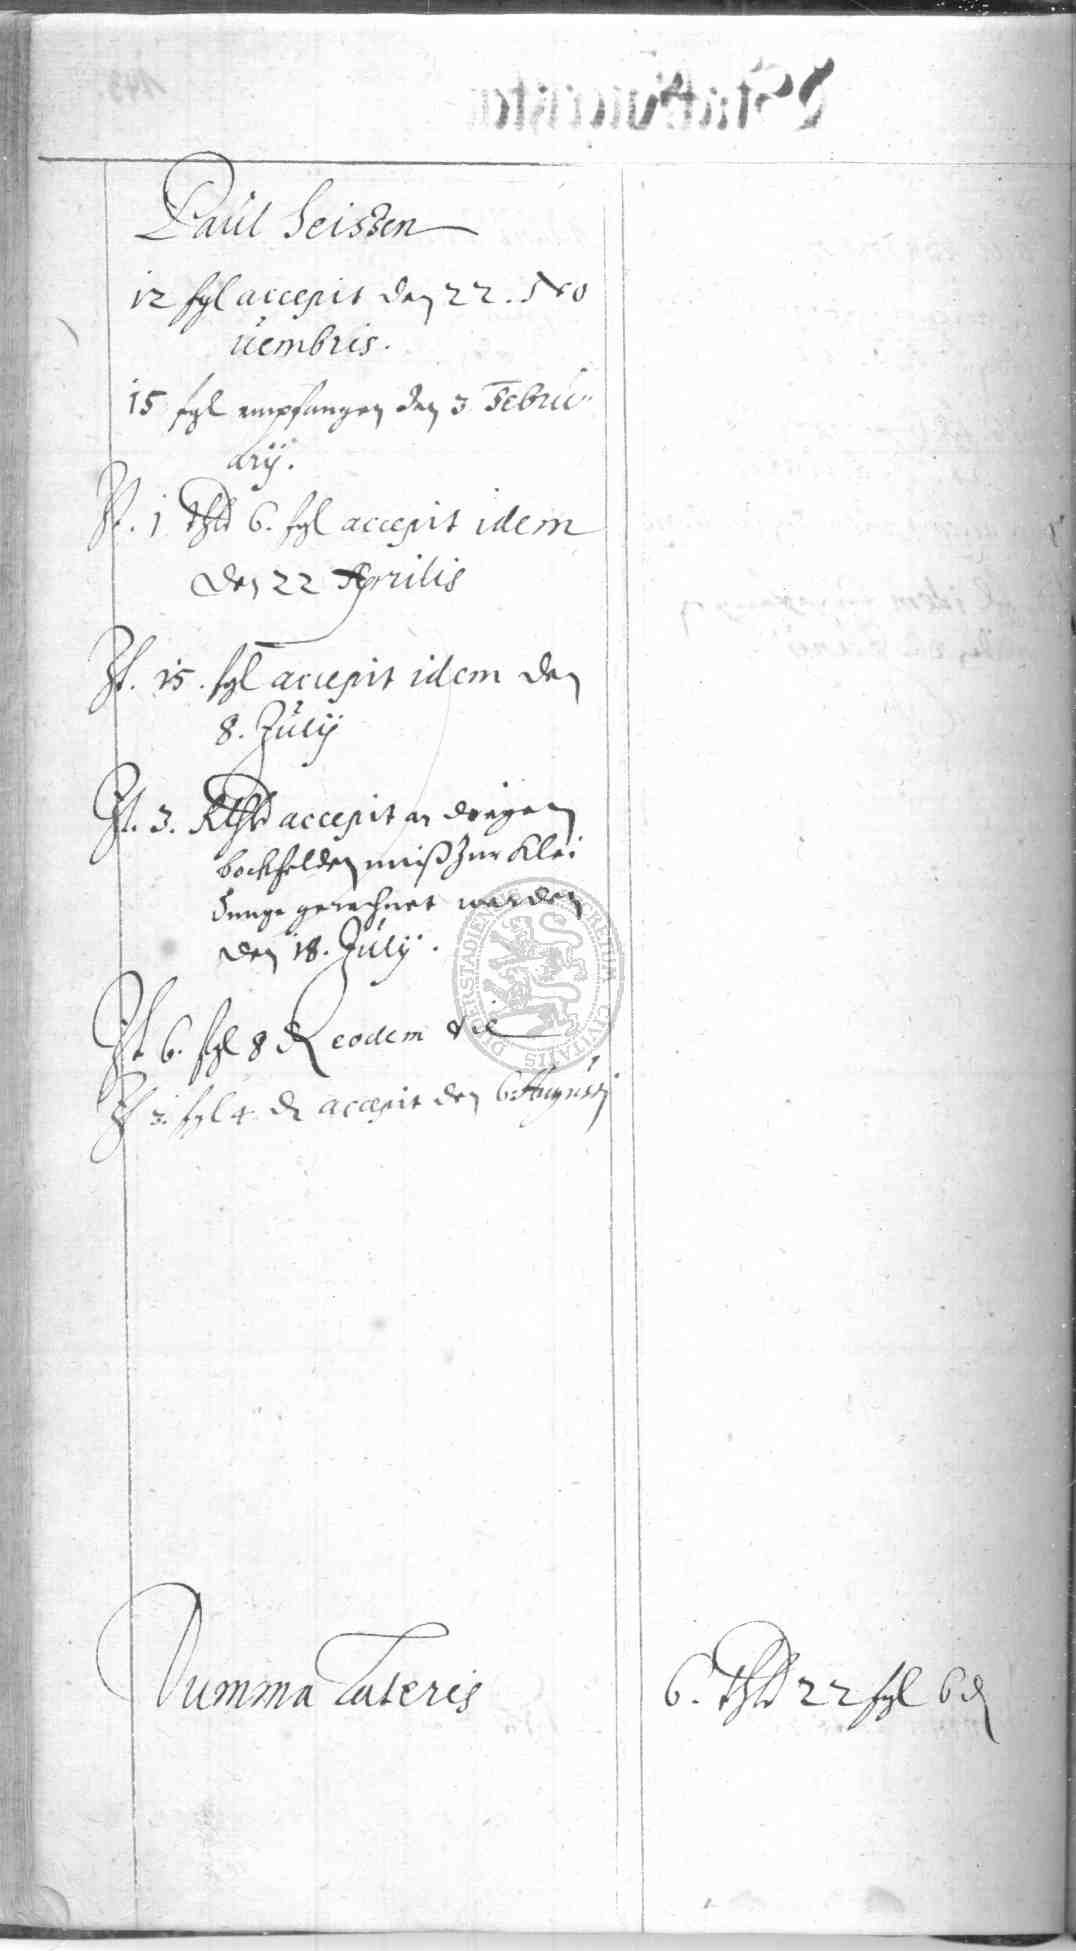 Paul Seissen
12 ßgl accepit den 22. No
uembris.
15 ßgl empfangen den 3 Febru
arij.
It. 1 thlr 6. ßgl accepit idem
den 22 Aprilis
It. 15. ßgl accepit idem den
8. Julij
It. 3. Rthlr accepit
zur Klei
dunge gerechnet werden
den 18. Julij.
It 6. ßgl 8 d eodem die
It 3. ßgl 4 d accepit den 6. Augusti
Summa Lateris 6. thlr 22 ßgl 6 d